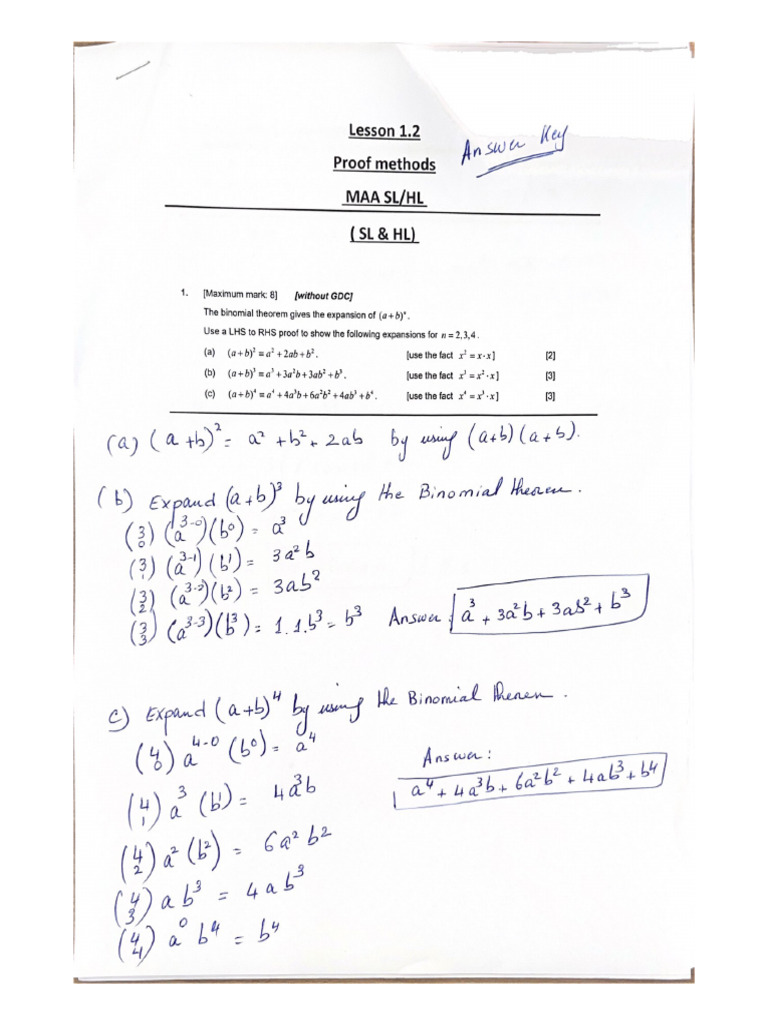 Lesson 1.2
Answer Key
Proof methods
MAA SL/HL
( SL & HL)
1. [Maximum mark: 8] [without GDC]
The binomial theorem gives the expansion of (a+b)ⁿ.
Use a LHS to RHS proof to show the following expansions for n = 2,3,4.
(a) (a+b)² = a² + 2ab + b². [use the fact x² = x·x] [2]
(b) (a+b)³ = a³ + 3a²b + 3ab² + b³. [use the fact x³ = x²·x] [3]
(c) (a+b)⁴ = a⁴ + 4a³b + 6a²b² + 4ab³ + b⁴. [use the fact x⁴ = x³·x] [3]
(a) (a+b)² = a² + b² + 2ab by using (a+b)(a+b).
(b) Expand (a+b)³ by using the Binomial theorem.
(3 0) (a³⁻⁰)(b⁰) = a³
(3 1) (a³⁻¹)(b¹) = 3a²b
(3 2) (a³⁻²)(b²) = 3ab²
(3 3) (a³⁻³)(b³) = 1.1.b³ = b³ Answer: a³ + 3a²b + 3ab² + b³
c) Expand (a+b)⁴ by using the Binomial theorem.
(4 0) a⁴⁻⁰ (b⁰) = a⁴
Answer:
a⁴ + 4a³b + 6a²b² + 4ab³ + b⁴
(4 1) a³ (b¹) = 4a³b
(4 2) a² (b²) = 6a²b²
(4 3) ab³ = 4ab³
(4 4) a⁰ b⁴ = b⁴